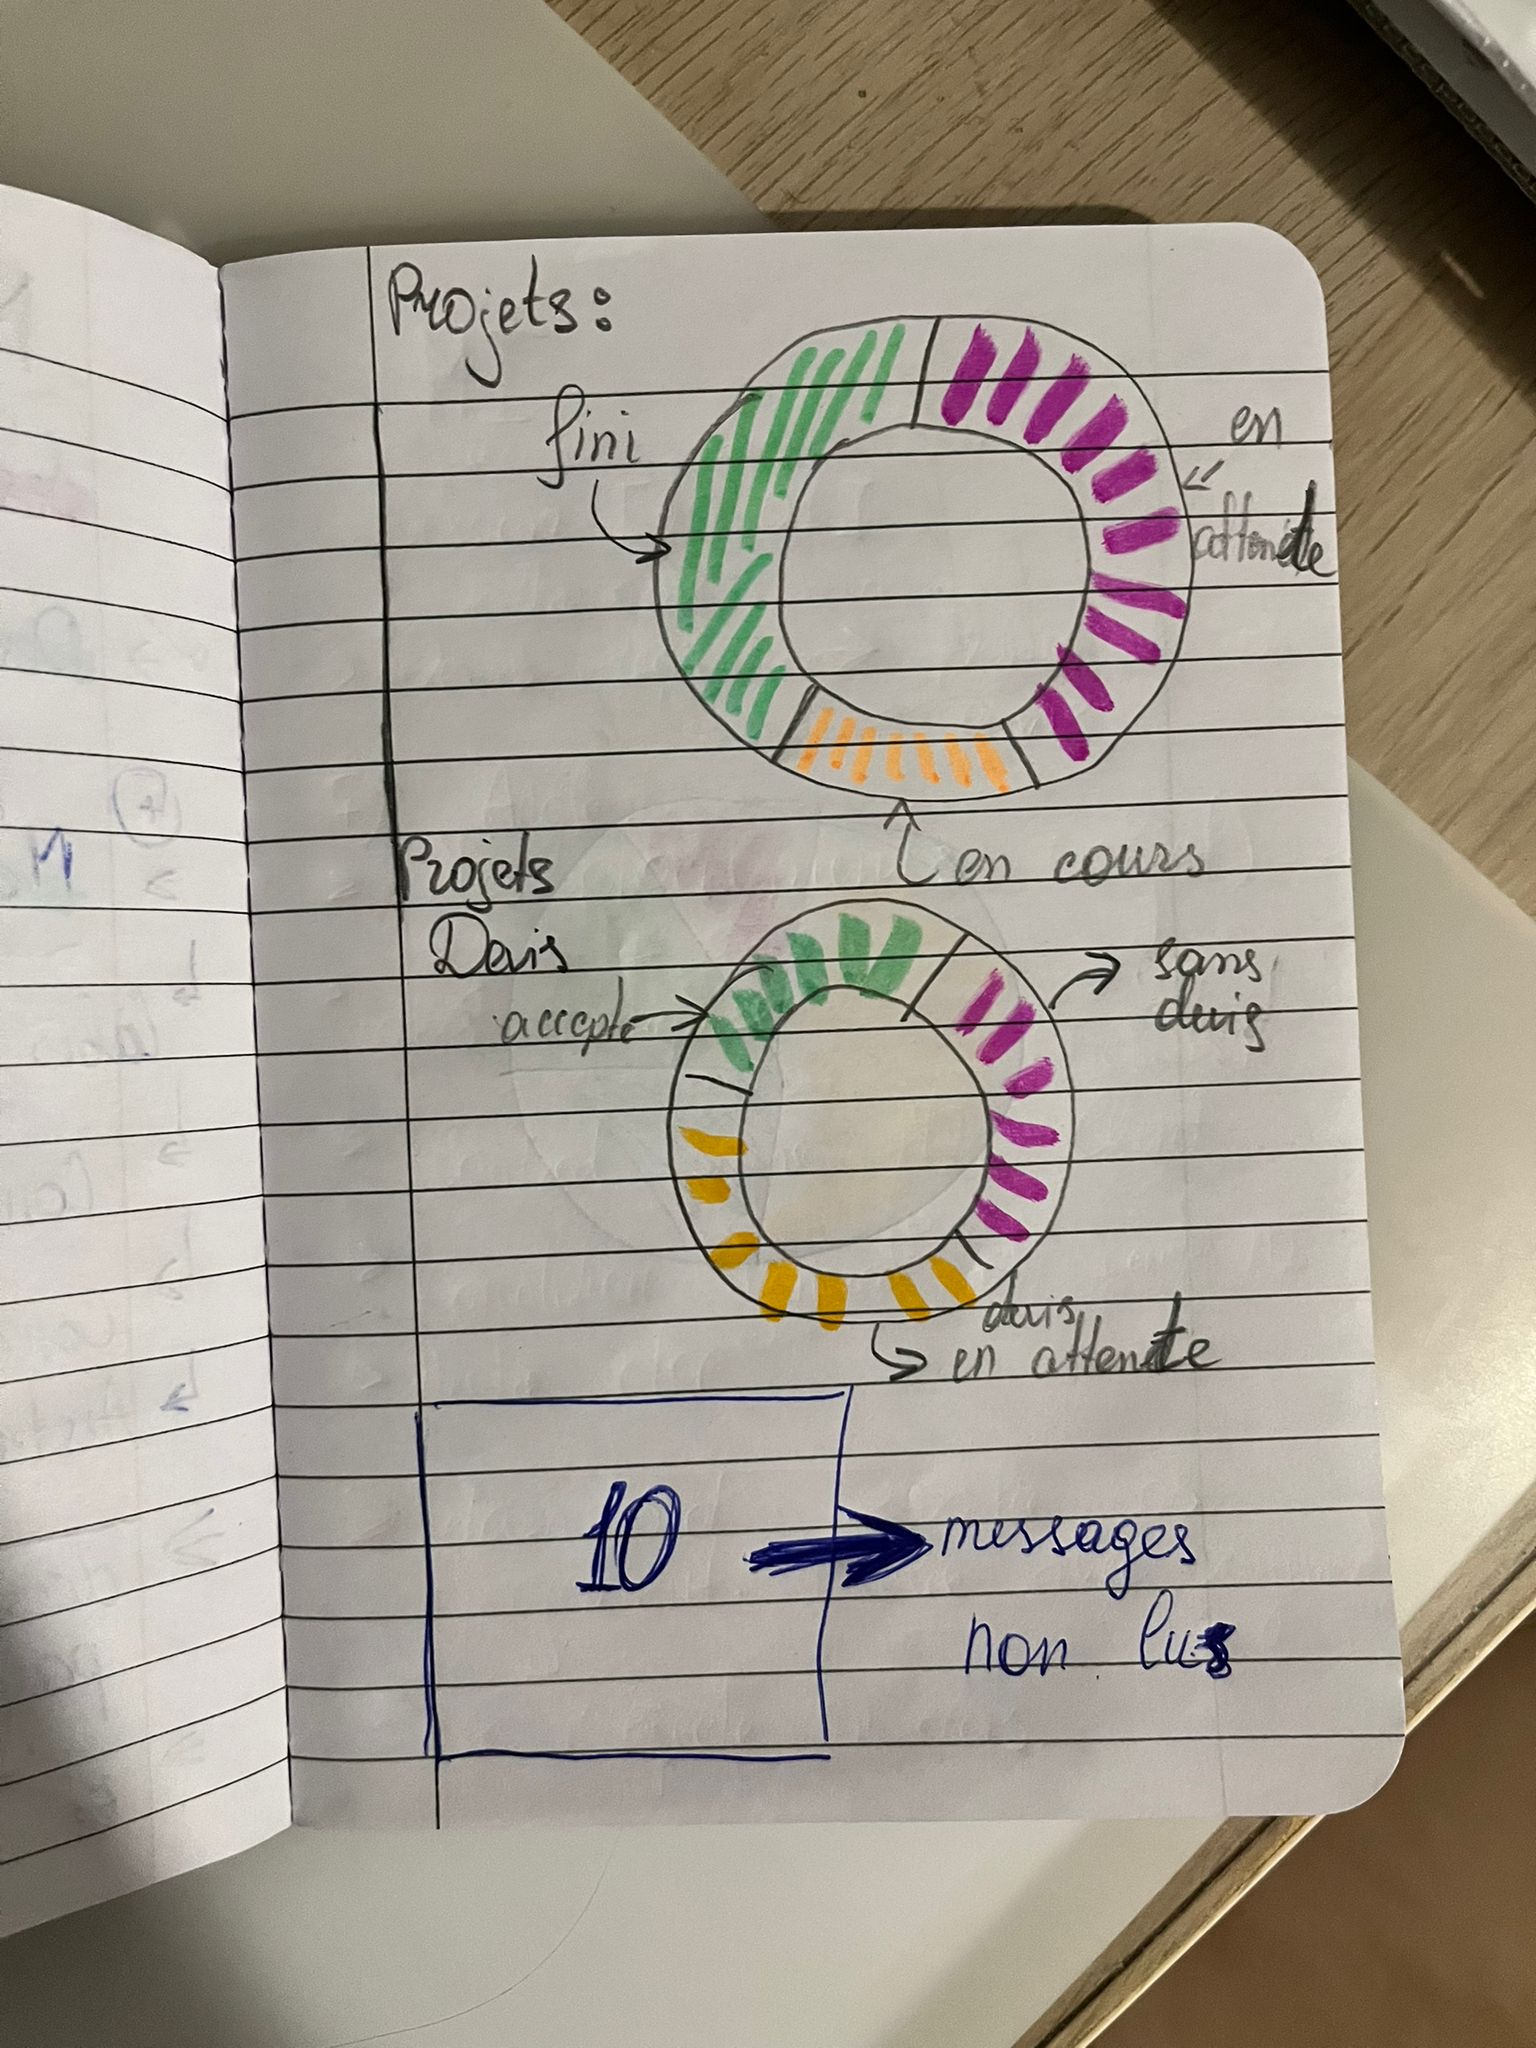 Projets:
fini
en
attente
en cours
Projets
Devis
accepté
sans
devis
devis
en attente
10
messages
non lus